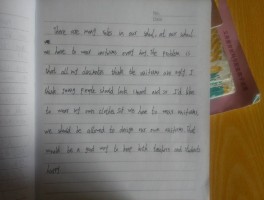 There are many rules in our school, at our school,
we have to wear uniforms every day. The problem is
that all my classmates think the uniforms are ugly. I
think young people should look smart and so I'd like
to wear my own clothes. If we have to wear uniforms,
we should be allowed to design our own uniforms. That
would be a good way to keep both teachers and students
happy.